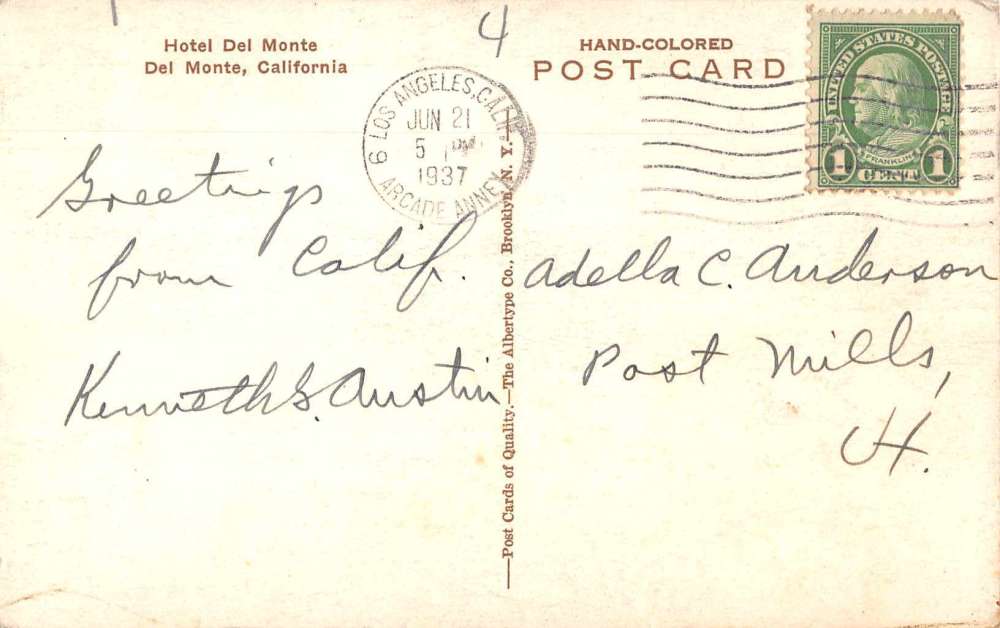 4
Hotel Del Monte
Del Monte, California
HAND-COLORED
POST CARD
6 LOS ANGELES, CALIF.
JUN 21
5 PM
1937
ARCADE ANNEX
UNITED STATES POSTAGE
FRANKLIN
1 CENT 1
Greetings
from Calif.
Kenneth S. Austin
Adella C. Anderson
Post Mills,
Vt.
—Post Cards of Quality.—The Albertype Co., Brooklyn, N. Y.—